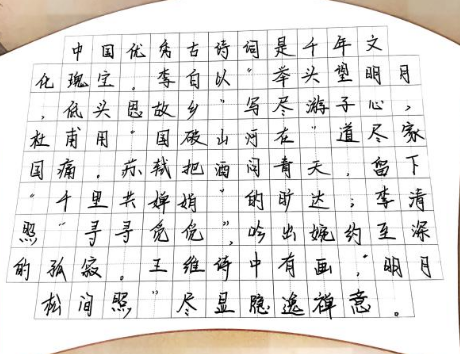 中国优秀古诗词是千年文
化瑰宝。李白以“举头望明月
,低头思故乡”写尽游子心,
杜甫用“国破山河在”道尽家
国痛。苏轼把酒问青天,留下
“千里共婵娟”的旷达;李清
照“寻寻觅觅”,吟出婉约至深
的孤寂。王维诗中有画,“明月
松间照”尽显隐逸禅意。